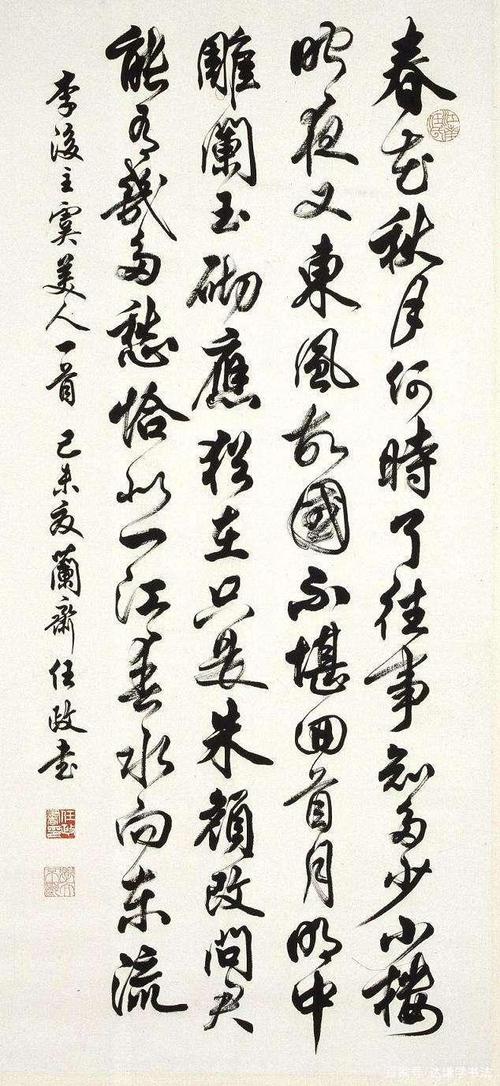 春花秋月何時了往事知多少小樓
昨夜又東風故國不堪回首月明中
雕闌玉砌應猶在只是朱顏改問君
能有幾多愁恰似一江春水向東流
李後主虞美人一首 己未夏蘭齋任政書
百家号/达谦学书法